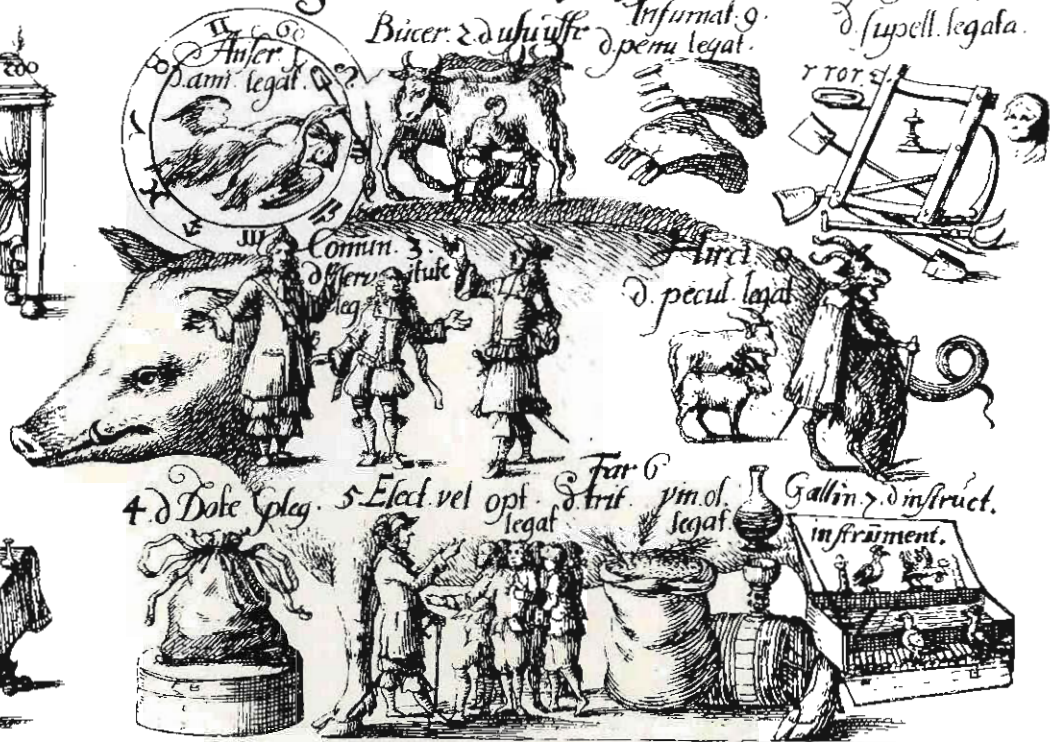 Anser. 1
D. ami. legat.
Bucer. 2. d usu uſfr
Infumat. 9.
d. penu legat.
d. supell. legata.
200
Comun. 3.
d. ſerv itute
leg
Hirci. 8
d. pecul. legat
4. d Dote
5 Elect. vel opt.
legat
Far 6
d. trit. vin. ol.
legat.
Gallin 7. d inſtruct.
inſtrument.